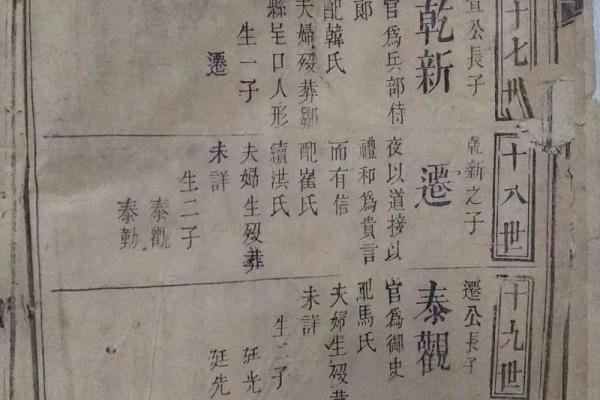 十七世
宣公長子
乾新
官爲兵部侍
郎
配韓氏
夫婦殁葬鄒
縣呈口人形
生一子
遷
十八世
乾新之子
遷
夜以道接以
禮和爲貴言
而有信
配崔氏
續洪氏
夫婦生殁葬
未詳
生二子
泰觀
泰勤
十九世
遷公長子
泰觀
官爲御史
配馬氏
夫婦生殁葬
未詳
生二子
廷光
廷先